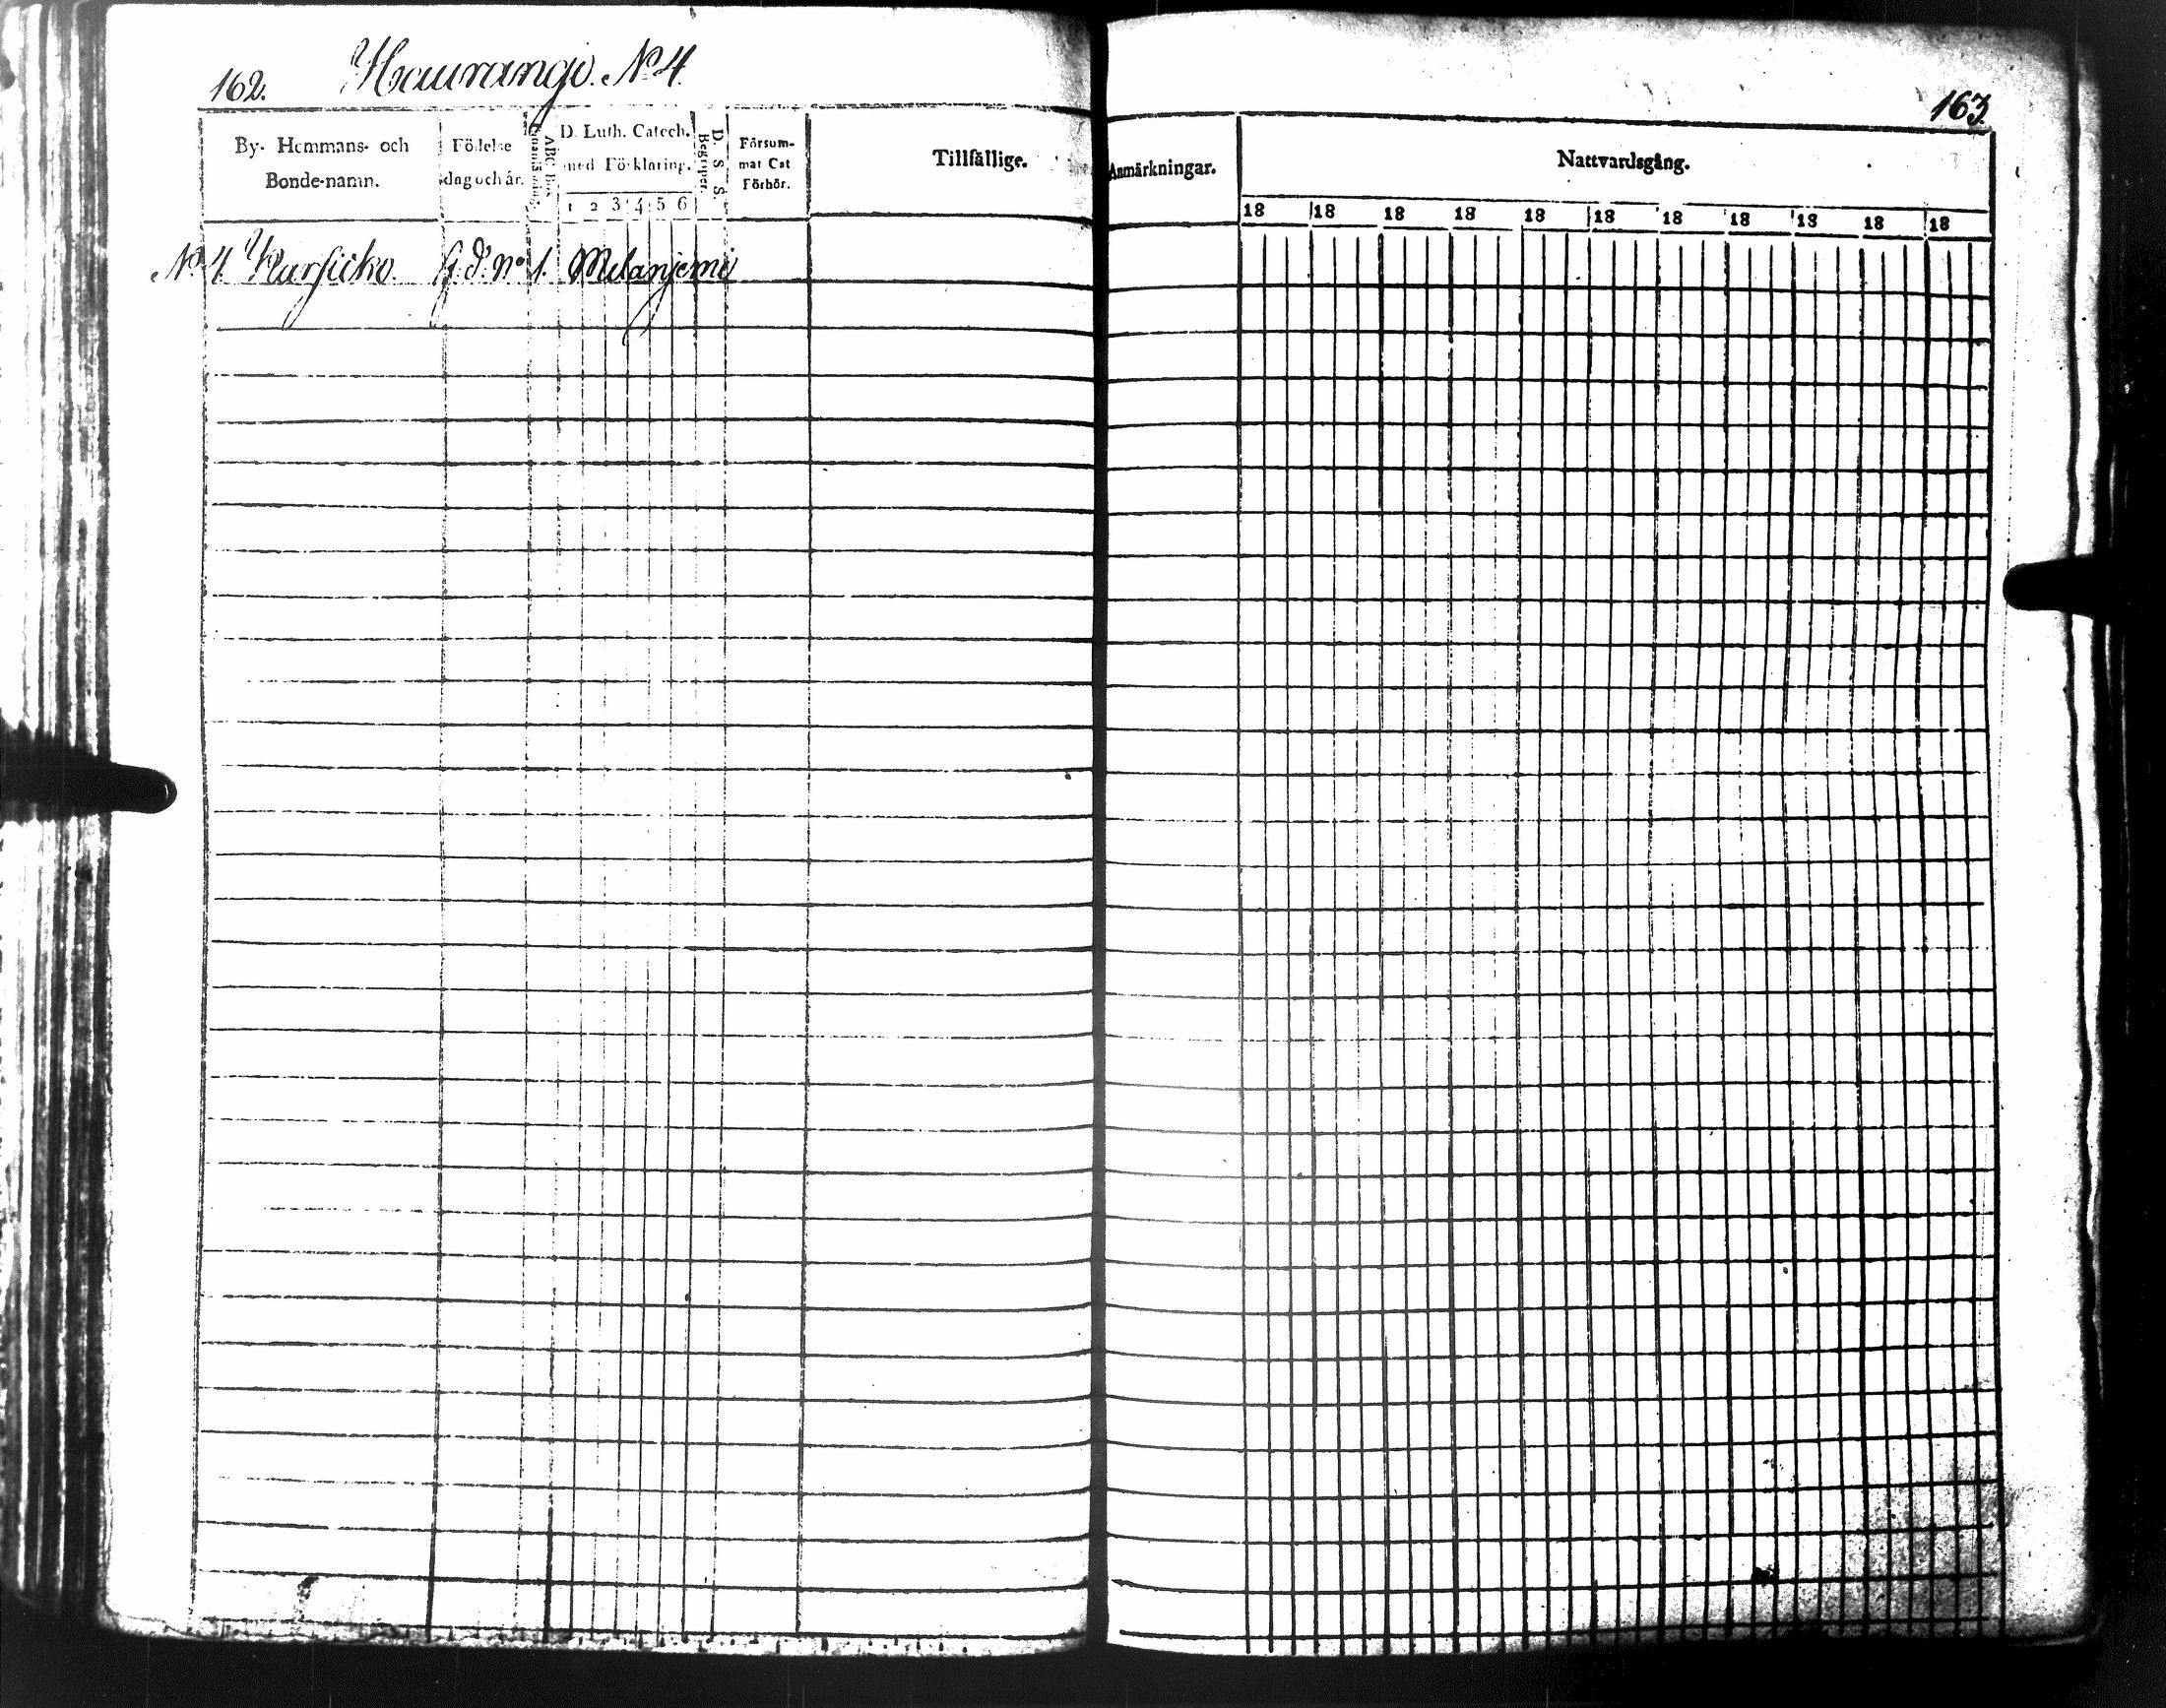 162. Haurango. N:o 4.
163.
By- Hemmans- och
Bonde-namn.
Födelse
dag och år.
ABC Bok
D. Luth. Catech.
med Förklaring.
1 2 3 4 5 6
D. S. S.
Begriper.
Försum-
mat Cat
Förhör.
Tillfällige.
Anmärkningar.
Nattvardsgång.
18 18 18 18 18 18 18 18 18 18 18
N:o 4. Karsicko. N:o 1.